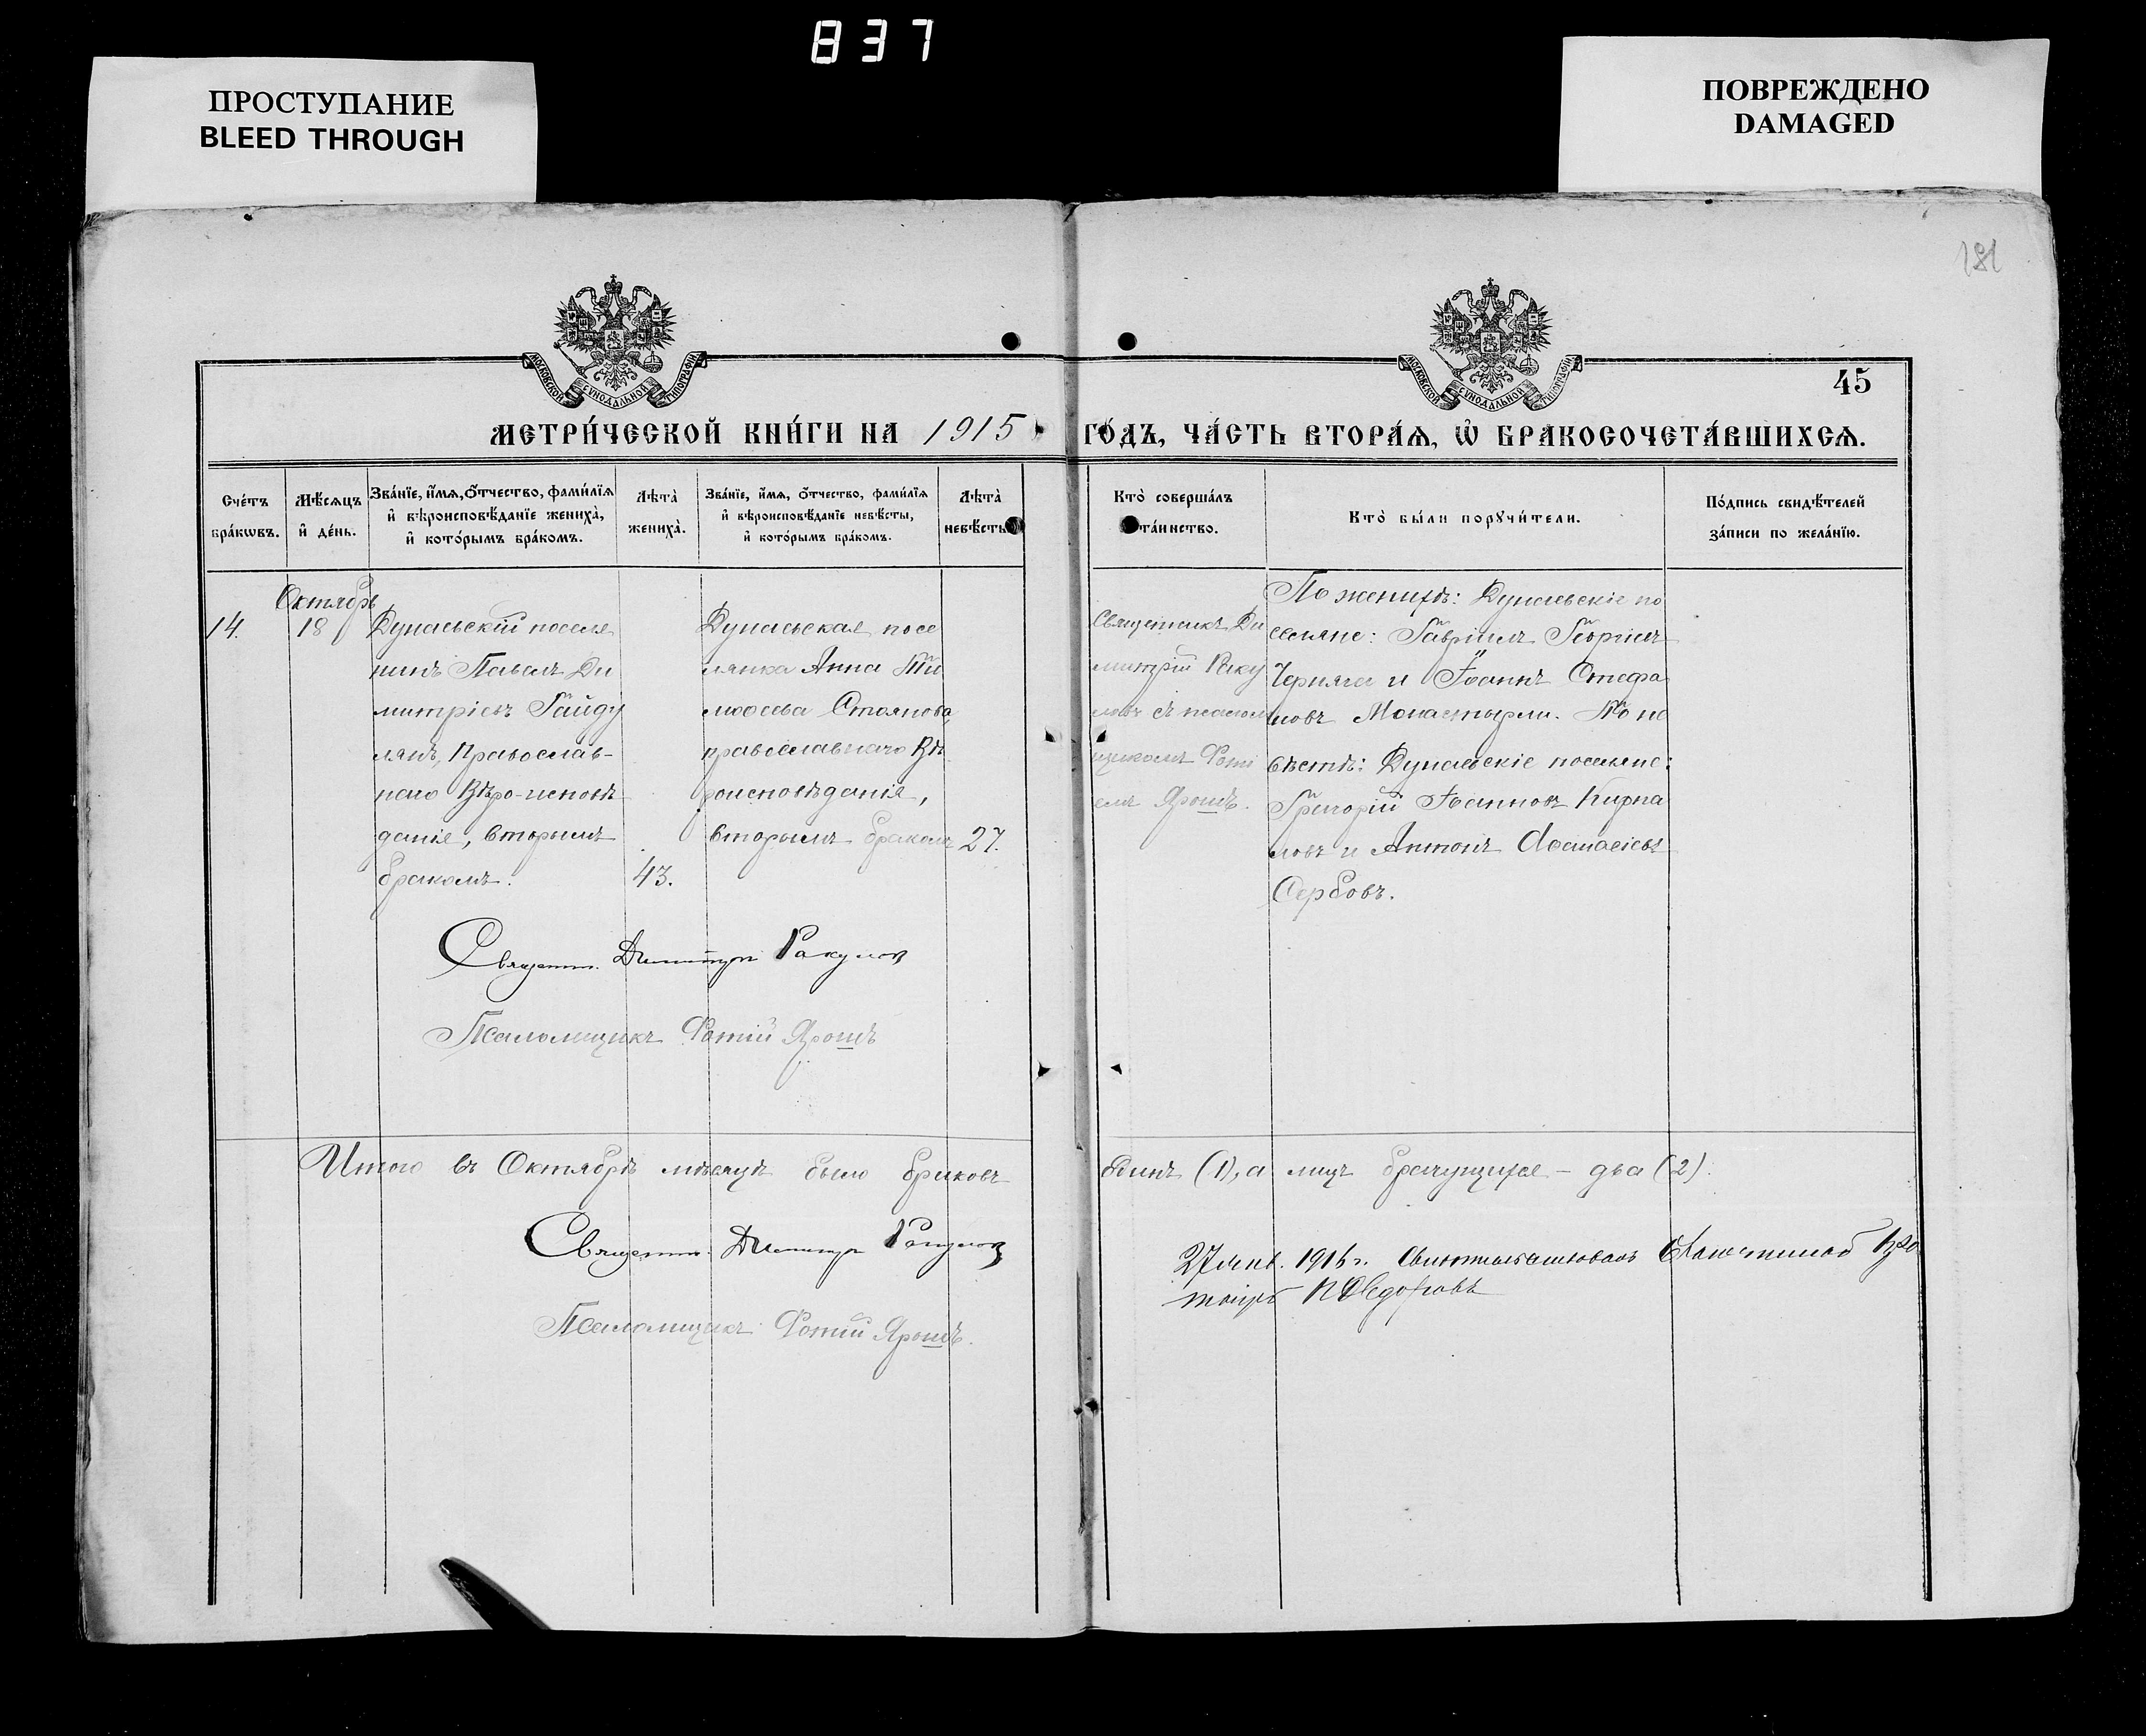 837
ПРОСТУПАНИЕ
BLEED THROUGH
ПОВРЕЖДЕНО
DAMAGED
181
МОСКОВСКОЙ СѴНОДАЛЬНОЙ ТИПОГРАФІИ
МОСКОВСКОЙ СѴНОДАЛЬНОЙ ТИПОГРАФІИ
45
МЕТРИ́ЧЕСКОЙ КНИ́ГИ НА 1915 ГО́ДЪ, ЧА́СТЬ ВТОРА́Ѧ, Ѡ҆ БРАКОСОЧЕТА́ВШИХСѦ.
Сче́тъ
бра́кѡвъ.
Мѣ́сѧцъ
и҆ де́нь.
Зва́нїе, и҆́мѧ, ѻ҆́тчество, фами́лїѧ
и҆ вѣроисповѣ́данїе жениха̀,
и҆ кото́рымъ бра́комъ.
Лѣта̀
жениха̀.
Зва́нїе, и҆́мѧ, ѻ҆́тчество, фами́лїѧ
и҆ вѣроисповѣ́данїе невѣ́сты,
и҆ кото́рымъ бра́комъ.
Лѣта̀
невѣ́сты
Кто̀ соверша́лъ
та́инство.
Кто̀ бы́ли порꙋчи́тели.
По́дпись свидѣ́телей
за́писи по жела́нїю.
14.
Октябрь
18
Дунаевскій поселя
нинъ Павелъ Ди
митріевъ Гайду
лянъ, Православ-
наго Вѣро-исповѣ
данія, вторымъ
бракомъ.
43.
Дунаевская посе
лянка Анна Ти
моѳеева Стоянова
православнаго Вѣ
роисповѣданія,
вторымъ бракомъ
27.
Священникъ Ди
митрій Раку
ловъ съ псалом
щикомъ Фоті
емъ Ярошъ.
По женихѣ: Дунаевскіе по
селяне: Гавріилъ Георгіевъ
Черняга и Іоаннъ Стефа
новъ Монастырли. По не
вѣстѣ: Дунаевскіе поселяне:
Григорій Іоанновъ Кирпа
ловъ и Антонъ Аѳанасіевъ
Сербовъ.
Священн. Димитрій Ракулов
Псаломщикъ Фотій Ярошъ
Итого въ Октябрѣ мѣсяцѣ было браковъ одинъ (1), а лицъ брачущихся – два (2).
Священн. Димитрій Ракулов
Псаломщикъ Фотій Ярошъ.
27 янв. 1916 г. Свидѣтельствовалъ